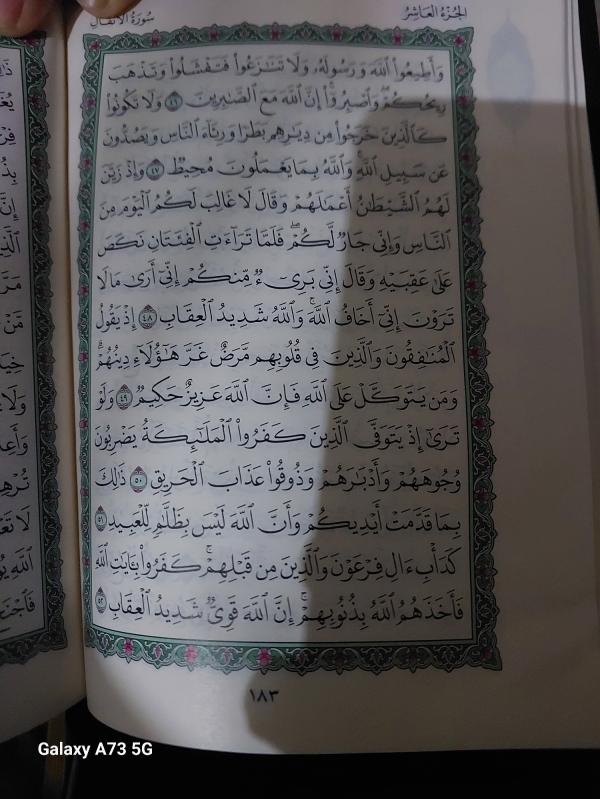 الجزء العاشر
سورة الأنفال
وَأَطِيعُوا۟ ٱللَّهَ وَرَسُولَهُۥ وَلَا تَنَٰزَعُوا۟ فَتَفْشَلُوا۟ وَتَذْهَبَ
رِيحُكُمْ ۖ وَٱصْبِرُوٓا۟ ۚ إِنَّ ٱللَّهَ مَعَ ٱلصَّٰبِرِينَ ٤٦ وَلَا تَكُونُوا۟
كَٱلَّذِينَ خَرَجُوا۟ مِن دِيَٰرِهِم بَطَرًا وَرِئَآءَ ٱلنَّاسِ وَيَصُدُّونَ
عَن سَبِيلِ ٱللَّهِ ۚ وَٱللَّهُ بِمَا يَعْمَلُونَ مُحِيطٌ ٤٧ وَإِذْ زَيَّنَ
لَهُمُ ٱلشَّيْطَٰنُ أَعْمَٰلَهُمْ وَقَالَ لَا غَالِبَ لَكُمُ ٱلْيَوْمَ مِنَ
ٱلنَّاسِ وَإِنِّى جَارٌ لَّكُمْ ۖ فَلَمَّا تَرَآءَتِ ٱلْفِئَتَانِ نَكَصَ
عَلَىٰ عَقِبَيْهِ وَقَالَ إِنِّى بَرِىٓءٌ مِّنكُمْ إِنِّىٓ أَرَىٰ مَا لَا
تَرَوْنَ إِنِّىٓ أَخَافُ ٱللَّهَ ۚ وَٱللَّهُ شَدِيدُ ٱلْعِقَابِ ٤٨ إِذْ يَقُولُ
ٱلْمُنَٰفِقُونَ وَٱلَّذِينَ فِى قُلُوبِهِم مَّرَضٌ غَرَّ هَٰٓؤُلَآءِ دِينُهُمْ ۗ
وَمَن يَتَوَكَّلْ عَلَى ٱللَّهِ فَإِنَّ ٱللَّهَ عَزِيزٌ حَكِيمٌ ٤٩ وَلَوْ
تَرَىٰٓ إِذْ يَتَوَفَّى ٱلَّذِينَ كَفَرُوا۟ ۙ ٱلْمَلَٰٓئِكَةُ يَضْرِبُونَ
وُجُوهَهُمْ وَأَدْبَٰرَهُمْ وَذُوقُوا۟ عَذَابَ ٱلْحَرِيقِ ٥٠ ذَٰلِكَ
بِمَا قَدَّمَتْ أَيْدِيكُمْ وَأَنَّ ٱللَّهَ لَيْسَ بِظَلَّٰمٍ لِّلْعَبِيدِ ٥١
كَدَأْبِ ءَالِ فِرْعَوْنَ ۙ وَٱلَّذِينَ مِن قَبْلِهِمْ ۚ كَفَرُوا۟ بِـَٔايَٰتِ ٱللَّهِ
فَأَخَذَهُمُ ٱللَّهُ بِذُنُوبِهِمْ ۗ إِنَّ ٱللَّهَ قَوِىٌّ شَدِيدُ ٱلْعِقَابِ ٥٢
١٨٣
Galaxy A73 5G